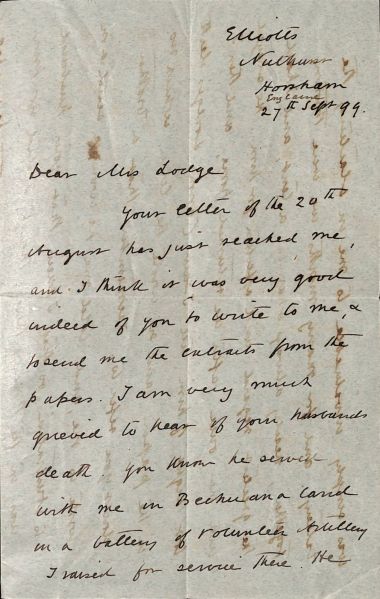 Elliotts
Nuthurst
Horsham
England
27th Sept 99.
Dear Mrs Lodge
Your letter of the 20th
August has just reached me,
and I think it was very good
indeed of you to write to me, &
to send me the extracts from the
papers. I am very much
grieved to hear of your husbands
death. you know he served
with me in Bechuanaland
in a battery of Volunteer Artillery
I raised for service there. He